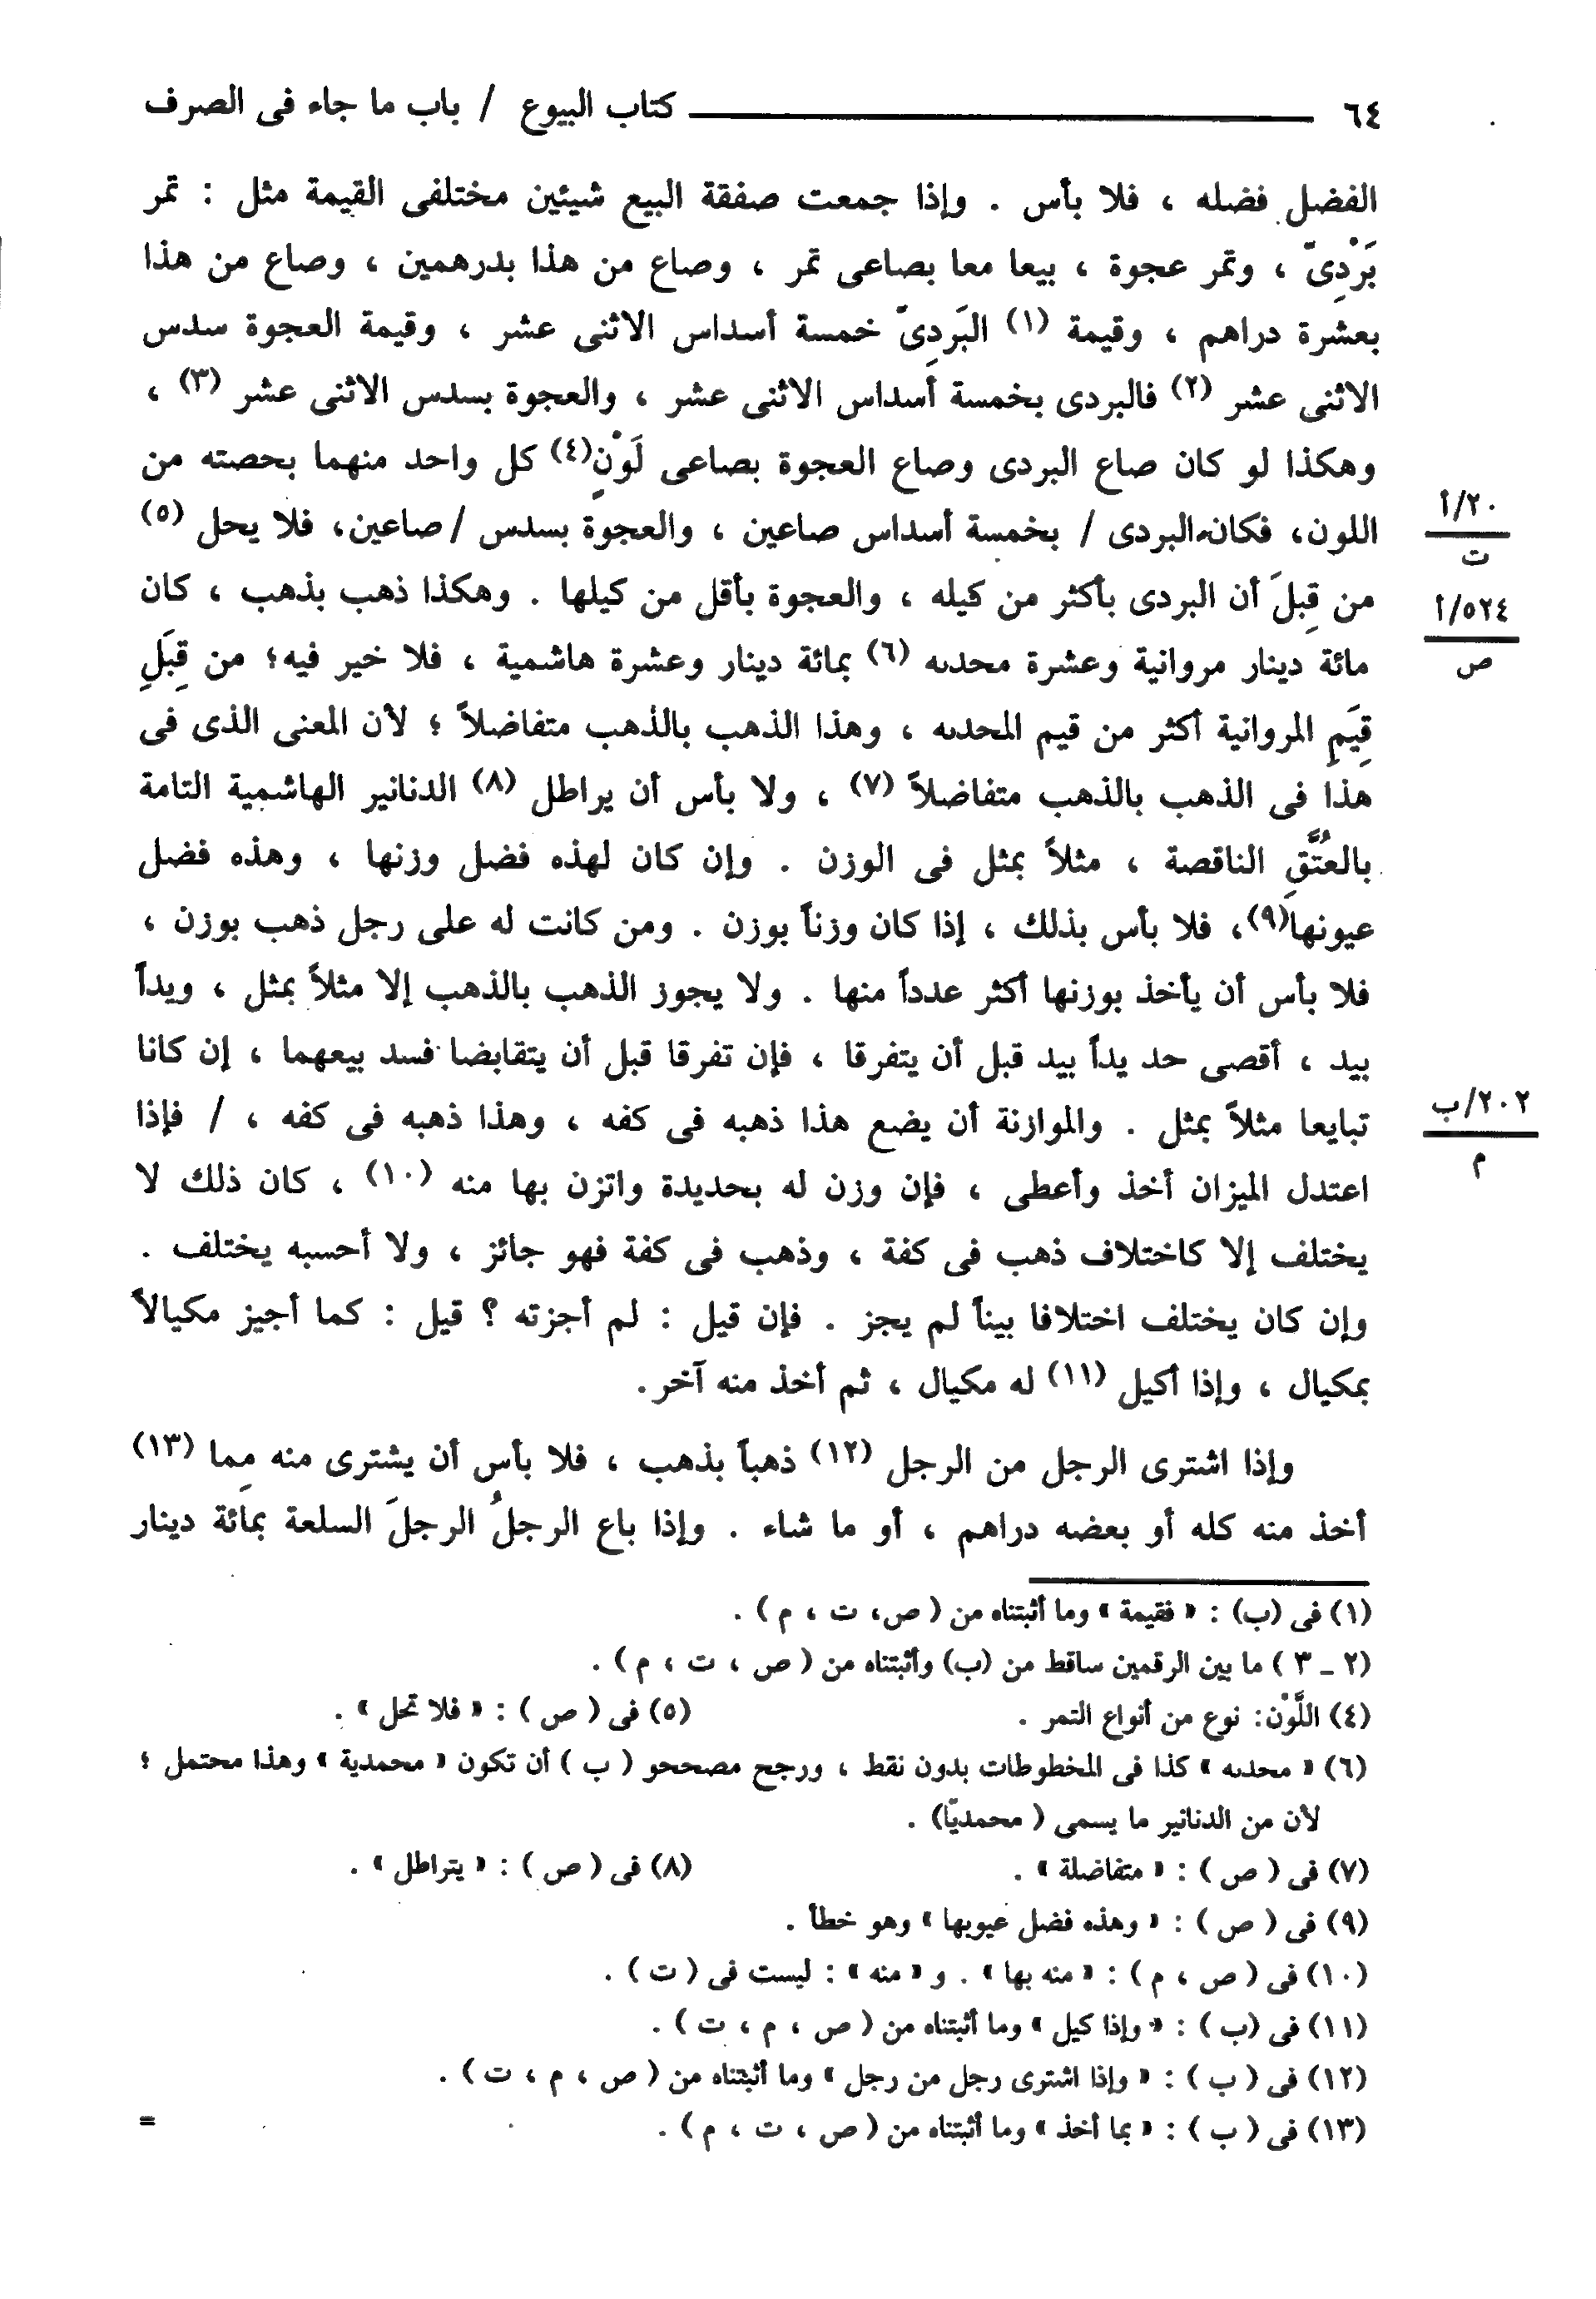 ٦٤ كتاب البيوع / باب ما جاء فى الصرف
الفضل فضله ، فلا بأس . وإذا جمعت صفقة البيع شيئين مختلفى القيمة مثل : تمر
بَرْدِىّ ، وتمر عجوة ، بيعا معا بصاعى تمر ، وصاع من هذا بدرهمين ، وصاع من هذا
بعشرة دراهم ، وقيمة (١) البَردِىّ خمسة أسداس الاثنى عشر ، وقيمة العجوة سدس
الاثنى عشر (٢) فالبردى بخمسة أسداس الاثنى عشر ، والعجوة بسدس الاثنى عشر (٣) ،
وهكذا لو كان صاع البردى وصاع العجوة بصاعى لَوْنٍ(٤) كل واحد منهما بحصته من
اللون، فكان البردى / بخمسة أسداس صاعين ، والعجوة بسدس /صاعين، فلا يحل (٥)
من قِبلَ أن البردى بأكثر من كيله ، والعجوة بأقل من كيلها . وهكذا ذهب بذهب ، كان
مائة دينار مروانية وعشرة محدىه (٦) بمائة دينار وعشرة هاشمية ، فلا خير فيه؛ من قِبَلِ
قِيَمِ المروانية أكثر من قيم المحدىه ، وهذا الذهب بالذهب متفاضلاً ؛ لأن المعنى الذى فى
هذا فى الذهب بالذهب متفاضلاً (٧) ، ولا بأس أن يراطل (٨) الدنانير الهاشمية التامة
بالعُتَّقِ الناقصة ، مثلاً بمثل فى الوزن . وإن كان لهذه فضل وزنها ، وهذه فضل
عيونها(٩)، فلا بأس بذلك ، إذا كان وزناً بوزن . ومن كانت له على رجل ذهب بوزن ،
فلا بأس أن يأخذ بوزنها أكثر عدداً منها . ولا يجوز الذهب بالذهب إلا مثلاً بمثل ، ويداً
بيد ، أقصى حد يداً بيد قبل أن يتفرقا ، فإن تفرقا قبل أن يتقابضا فسد بيعهما ، إن كانا
تبايعا مثلاً بمثل . والموازنة أن يضع هذا ذهبه فى كفه ، وهذا ذهبه فى كفه ، / فإذا
اعتدل الميزان أخذ وأعطى ، فإن وزن له بحديدة واتزن بها منه (١٠) ، كان ذلك لا
يختلف إلا كاختلاف ذهب فى كفة ، وذهب فى كفة فهو جائز ، ولا أحسبه يختلف .
وإن كان يختلف اختلافا بيناً لم يجز . فإن قيل : لم أجزته ؟ قيل : كما أجيز مكيالاً
بمكيال ، وإذا أكيل (١١) له مكيال ، ثم أخذ منه آخر.
وإذا اشترى الرجل من الرجل (١٢) ذهباً بذهب ، فلا بأس أن يشترى منه مِما (١٣)
أخذ منه كله أو بعضه دراهم ، أو ما شاء . وإذا باع الرجلُ الرجلَ السلعة بمائة دينار
٢٠/أ
ت
٥٢٤/أ
ص
٢٠٢/ب
م
(١) فى (ب) : « فقيمة » وما أثبتناه من ( ص، ت ، م ) .
(٢ ـ ٣ ) ما بين الرقمين ساقط من (ب) وأثبتناه من ( ص ، ت ، م ) .
(٤) اللَّوْن: نوع من أنواع التمر . (٥) فى ( ص ) : « فلا تحل » .
(٦) « محدىه » كذا فى المخطوطات بدون نقط ، ورجح مصححو ( ب ) أن تكون « محمدية » وهذا محتمل ؛
لأن من الدنانير ما يسمى ( محمديّا) .
(٧) فى ( ص ) : « متفاضلة » . (٨) فى ( ص ) : « يتراطل » .
(٩) فى ( ص ) : « وهذه فضل عيوبها » وهو خطأ .
(١٠) فى ( ص ، م ) : « منه بها » . و « منه » : ليست فى ( ت ) .
(١١) فى (ب ) : « وإذا كيل » وما أثبتناه من ( ص ، م ، ت ) .
(١٢) فى ( ب ) : « وإذا اشترى رجل من رجل » وما أثبتناه من ( ص ، م ، ت ) .
(١٣) فى ( ب ) : « بما أخذ » وما أثبتناه من ( ص ، ت ، م ) .
=